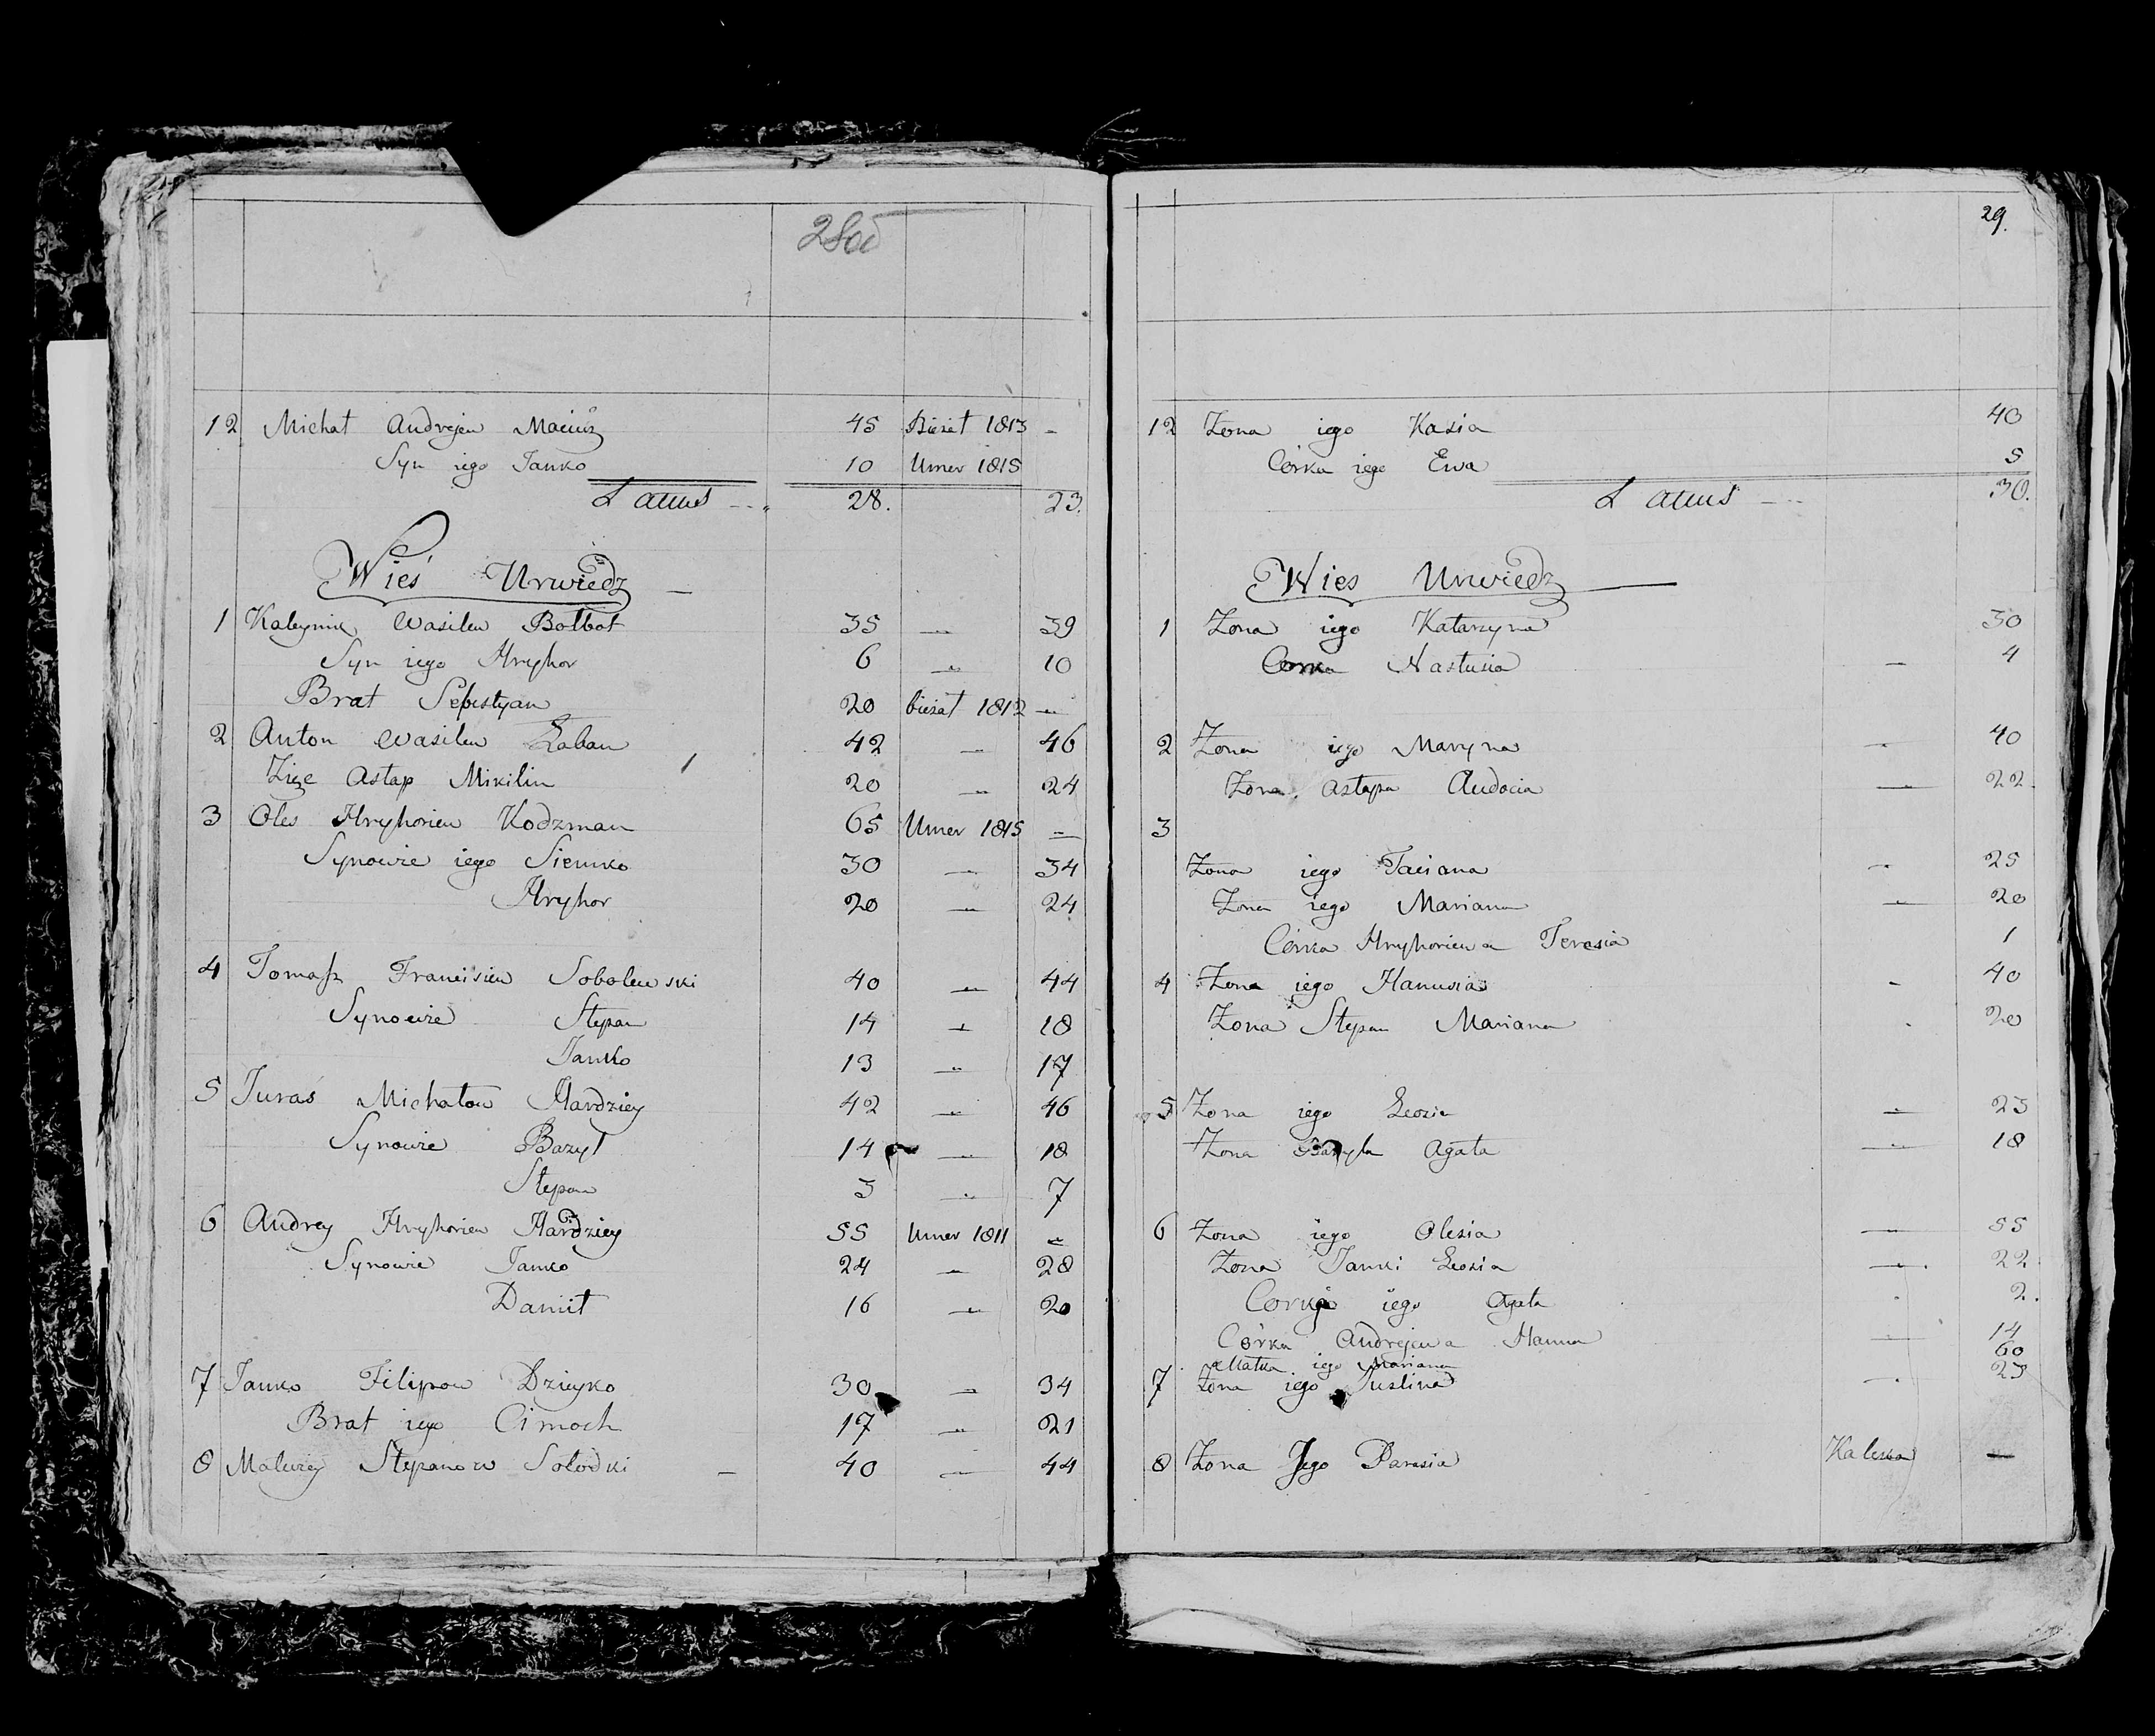 28об
12 Michał Andrejew Maciuz 45 Bieżał 1813 -
Syn iego Janko 10 Umer 1815
Latus 28. 23.
Wieś Urwiedz
1 Kaleynik Wasilew Bołbot 35 — 39
Syn iego Hryhor 6 — 10
Brat Sebestyan 20 bieżał 1812 —
2 Anton Wasilew Łaban 42 — 46
Zięć Astap Mikilin 20 — 24
3 Oles Hryhoriew Kodzman 65 Umer 1815 —
Synowie iego Siemko 30 — 34
Hryhor 20 — 24
4 Tomasz Franciszew Sobolewski 40 — 44
Synowie Stepan 14 — 18
Janko 13 — 17
5 Juraś Michałow Hardziey 42 — 46
Synowie Bazyl 14 — 18
Stepan 3 — 7
6 Andrey Hryhoriew Hardziey 55 Umer 1811 —
Synowie Janko 24 — 28
Danił 16 — 20
7 Janko Filippow Dzieyko 30 — 34
Brat iego Cimoch 17 — 21
8 Stepanow Sołodki — 40 — 44
29.
12 Żona iego Kasia 40
Córka iego Ewa 5
Latus 30.
Wies Urwiedz
1 Żona iego Katarzyna 30
Corka Nastusia — 4
2 Żona iego Maryna — 40
Żona Astapa Audocia — 22.
3
Żona iego Taciana — 25
Żona iego Mariana — 20
Córka Hryhoriewa Teresia 1
4 Żona iego Hanusia - 40
Żona Stepan Mariana 20
5 Żona iego Łuzia — 23
Żona Bazyla Agata — 18
6 Żona iego Olesia — 55
Żona Janki Łuzia — 22
Corka iego Agata 2.
Córka Andrejewa Hanna — 14
Matka iego Mariana 60
7 Żona iego Justina — 23
8 Żona Jego Parasia Kaleka —